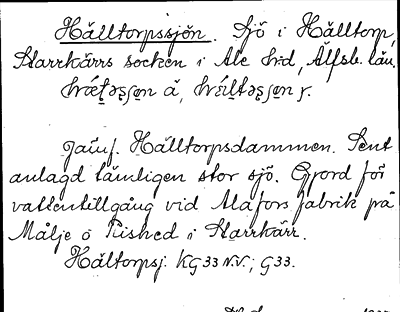 Hålltorpssjön. Sjö i Hålltorp,
Starrkärrs socken i Ale hd, Älfsb. län.
Jämf. Hålltorpsdammen. Sent
anlagd tämligen stor sjö. Gjord för
vattentillgång vid Alafors fabrik på
Målje o Rished i Starrkärr.
Håltorpsj. KG 33 N.V.; G 33.